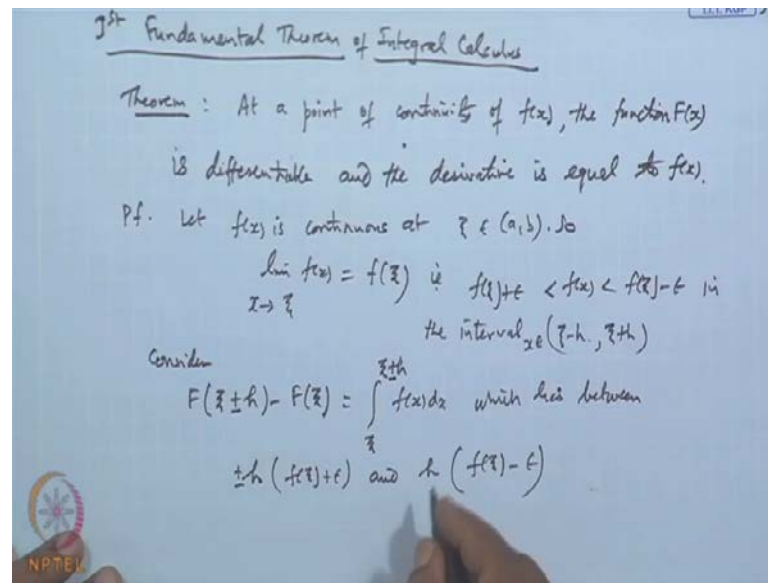 Ist Fundamental Theorem of Integral Calculus
Theorem : At a point of continuity of f(x), the function F(x)
is differentiable and the derivative is equal to f(x).
Pf. Let f(x) is continuous at ξ ∈ (a,b). So
lim f(x) = f(ξ) ie f(ξ)+ε < f(x) < f(ξ)-ε in
x→ξ
the interval x∈ (ξ-h, ξ+h)
Consider
F(ξ±h) - F(ξ) = ∫_ξ^{ξ±h} f(x)dx which lies between
±h (f(ξ)+ε) and h (f(ξ)-ε)
NPTEL